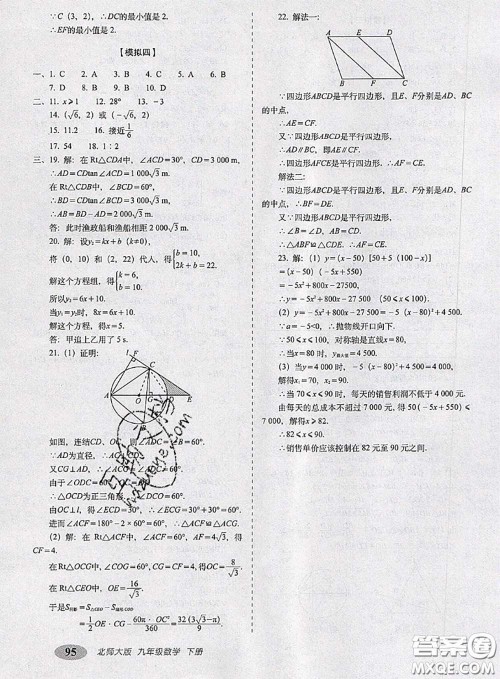 ∵C（3，2），∴DC的最小值是2.
∴EF的最小值是2.
【模拟四】
一、1. C 2. D 3. B 4. C 5. B 6. B
7. D 8. A 9. D 10. D
二、11. x≥1 12. 28° 13. －3
14.（√6，2）或（－√6，2）
15. 11.2 16. 接近1/6
17. 54 18. 1∶2
三、19. 解：在 Rt△CDA中，∠ACD=30°，CD=3 000 m，
∴AD=CDtan∠ACD=1 000√3 m.
在 Rt△CDB中，∠BCD=60°，
∴BD=CDtan∠BCD=3 000√3 m.
∴AB=BD－AD=2 000√3 m.
答：此时渔政船和渔船相距2 000√3 m.
20. 解：设y₁=kx+b（k≠0），
将（0，10）和（2，22）代入，得{b=10, 2k+b=22.
解这个方程组，得{k=6, b=10.
所以y₁=6x+10.
当y₁=y₂时，8x=6x+10.
解这个方程，得x=5.
答：甲追上乙用了5 s.
21.（1）证明：
l F C
A O G D E
B
如图，连结CD、OC，则∠ADC=∠B=60°.
∵AD为直径，∴∠ACD=90°.
又CG⊥AD，∴∠ACG=∠ADC=60°.
由于∠ODC=60°，OC=OD，
∴△OCD为正三角形，∠DCO=60°.
由OC⊥l，得∠ECD=30°，∴∠ECG=30°+30°=60°.
进而∠ACF=180°－2×60°=60°，∴△ACF≌△ACG.
（2）解：在 Rt△ACF中，∠ACF=60°，AF=4√3，得
CF=4.
在 Rt△OCG中，∠COG=60°，CG=CF=4，得OC=8/√3.
在 Rt△CEO中，OE=16/√3.
于是S阴影=S△CEO－S扇形COD
=1/2 OE·CG－60π·OC²/360=32（3√3－π）/9.
95 北师大版 九年级数学 下册
22. 解法一：
A E D
B F C
∵四边形ABCD是平行四边形，且E、F分别是AD、BC
的中点，
∴AE=CF.
又∵四边形ABCD是平行四边形，
∴AD∥BC，即AE∥CF.
∴四边形AFCE是平行四边形.∴AF=CE.
解法二：
∵四边形ABCD是平行四边形，且E、F分别是AD、BC
的中点，∴BF=DE.
又∵四边形ABCD是平行四边形，
∴∠B=∠D，AB=CD.
∴△ABF≌△CDE.∴AF=CE.
23. 解：（1）y=（x－50）[50+5（100－x）]
=（x－50）（－5x+550）
=－5x²+800x－27500，
∴y=－5x²+800x－27 500（50≤x≤100）.
（2）y=－5x²+800x－27500=－5（x－80）²+4500，
∵a=－5<0，∴抛物线开口向下.
∵50≤x≤100，对称轴是直线x=80，
∴当x=80时，y最大值=4 500.
（3）当y=4 000时，－5（x－80）²+4500=4 000，
解得x₁=70，x₂=90.
∴当70≤x≤90时，每天的销售利润不低于4 000元.
由每天的总成本不超过7 000元，得50（－5x+550）≤
7 000，
解得x≥82.
∴82≤x≤90.
∴销售单价应该控制在82元至90元之间.
答案圈
MXQE.COM